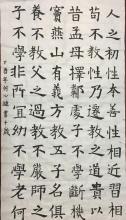 人之初性本善性相近習相遠
苟不教性乃遷教之道貴以專
昔孟母擇鄰處子不學斷機杼
竇燕山有義方教五子名俱揚
養不教父之過教不嚴師之惰
子不學非所宜幼不學老何為
丁酉年